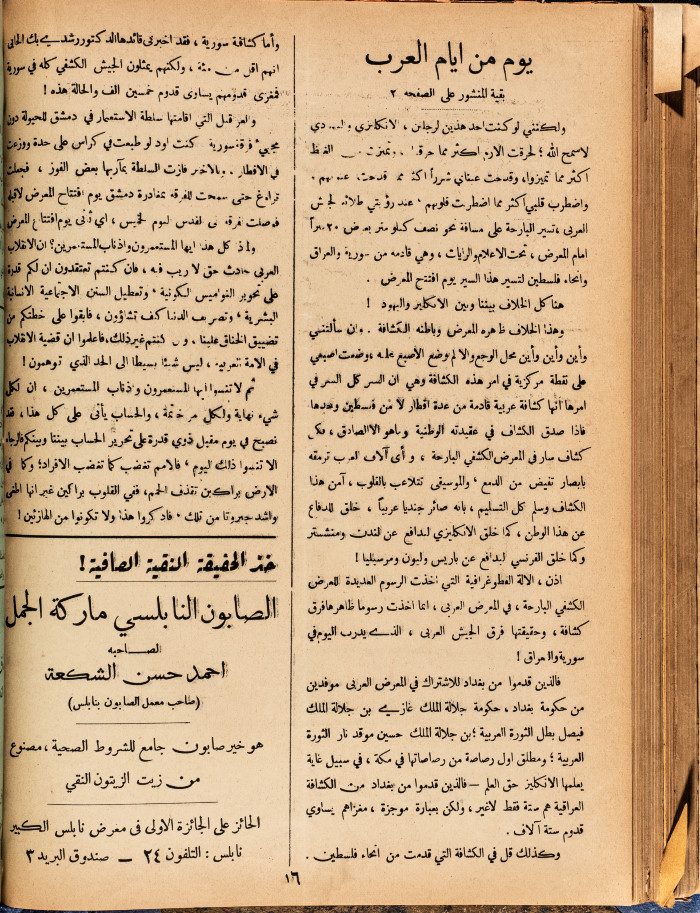 يوم من ايام العرب
بقية المنشور على الصفحه ٢
ولكنني لو كنت احد هذين لرجلين ، الانكليزي واليهودي
لاسمح الله ؛ لحرقت الارم اكثر مما حرقا ، وتميزت من الغيظ
اكثر مما تميزوا، وقدحت عيناي شرراً اكثر مما قدحت عيونهم .
واضطرب قلبي اكثر مما اضطرت قلوبهم ' عند رؤيتي طلائع الجيش
العربي ، تسير البارحة على مسافة نحو نصف كيلو متر بعرض ٣٠ متراً
امام المعرض ، تحت الاعلام والرايات ، وهي قادمه من سورية والعراق
وانحاء فلسطين لتسير هذا السير يوم افتتح المعرض .
هنا كل الخلاف بيننا وبين الانكليز واليهود !
وهذا الخلاف ظاهره المعرض وباطنه الكشافة . وان سألتني
وأين وأين وأين محل الوجع والالم لوضع الأصبع عليه ، وضعت اصبعي
على نقطة مركزية في امر هذه الكشافة وهي ان السر كل السر في
امرها أنها كشافة عربية قادمة من عدة اقطار لا من فلسطين وحدها
فاذا صدق الكشاف في عقيدته الوطنية وماهو الا الصادق ، فكل
كشاف سار في المعرض الكشفي البارحة ، و أى آلاف العرب ترمقه
بابصار تفيض من الدمع ' والموسيقى تتلاعب بالقلوب ، آمن هذا
الكشاف وسلم كل التسليم ، بانه صائر جنديا عربياً ، خلق للدفاع
عن هذا الوطن ، كما خلق الانكليزي ليدافع عن لندن ومنشستر
وكما خلق الفرنسي ليدافع عن باريس وليون ومرسيليا !
اذن ، الالة الفطوغرافية التي اخذت الرسوم العديدة للمعرض
الكشفي البارحة ، في المعرض العربي ، انما اخذت رسوما ظاهرها فرق
كشافة ، وحقيقتها فرق الجيش العربي ، الذي يدرب اليوم في
سورية والعراق !
فالذين قدموا من بغداد للاشتراك في المعرض العربي موفدين
من حكومة بغداد ، حكومة جلالة الملك غازي بن جلالة الملك
فيصل بطل الثورة العربية ؛ بن جلالة الملك حسين موقد نار الثورة
العربية ؛ ومطلق اول رصاصة من رصاصاتها في مكة ، في سبيل غاية
يعلمها الانكليز حق العلم — فالذين قدموا من بغداد من الكشافة
العراقية هم ستة فقط لاغير ، ولكن بعبارة موجزة ، مغزاهم يساوي
قدوم ستة آلاف .
وكذلك قل في الكشافة التي قدمت من انحاء فلسطين .
وأما كشافة سورية ، فقد اخبرني قائدها الدكتور رشدي بك الجابي
انهم اقل من مئة ، ولكنهم يمثلون الجيش الكشفي كله في سورية
فمغزى قدومهم يساوي قدوم خمسين الف والحالة هذه !
والعراقيل التي اقامتها سلطة الاستعمار في دمشق للحيلولة دون
مجيئ فرقة سورية كنت اود لو طبعت في كراس على حدة ووزعت
في الاقطار . وبالاخير فازت السلطة بمآربها بعض الفوز ، فجعلت
تراوغ حتى سمحت للفرقة بمغادرة دمشق يوم افتتاح المعرض لاقبله
فوصلت الفرقة الى القدس اليوم الخميس ، اي ثاني يوم افتتاح المعرض
ولماذا كل هذا ايها المستعمرون واذناب المستعمرين ؟ ان الانقلاب
العربي حادث حق لا ريب فيه ، فان كنتم تعتقدون ان لكم قدرة
على تحوير النواميس الكونية ' وتعطيل السنن الاجتماعية الانسانية
البشرية ' وتصريف الدنيا كيف تشاؤون ، فابقوا على خطتكم من
تضييق الخناق علينا . وان كنتم غير ذلك، فاعلموا ان قضية الانقلاب
في الامة العربية ، ليس شيئا بسيطا الى الحد الذي توهمون !
ثم لا تنسوا ايها المستعمرون واذناب المستعمرين ، ان لكل
شيء نهاية ولكل امر خاتمة ، والحساب يأتي على كل هذا ، فقد
نصبح في يوم مقبل ذوي قدرة على تحرير الحساب بيننا وبينكم فالرجاء
الا تنسوا ذلك اليوم ' فالامم تغضب كما تغضب الافراد ؛ وكما في
الارض براكين تقذف الحمم ، ففي القلوب براكين غير انها اطغى
واشد جبروتا من تلك ' فاذكروا هذا ولا تكونوا من الهازئين !
خذ الحقيقة النقية الصافية !
الصابون النابلسي ماركة الجمل
لصاحبه
احمد حسن الشكعة
(صاحب معمل الصابون بنابلس)
هو خير صابون جامع للشروط الصحية ، مصنوع
من زيت الزيتون النقي
الحائز على الجائزة الاولى في معرض نابلس الكبير
نابلس : التلفون ٢٤ — صندوق البريد ٣
١٦